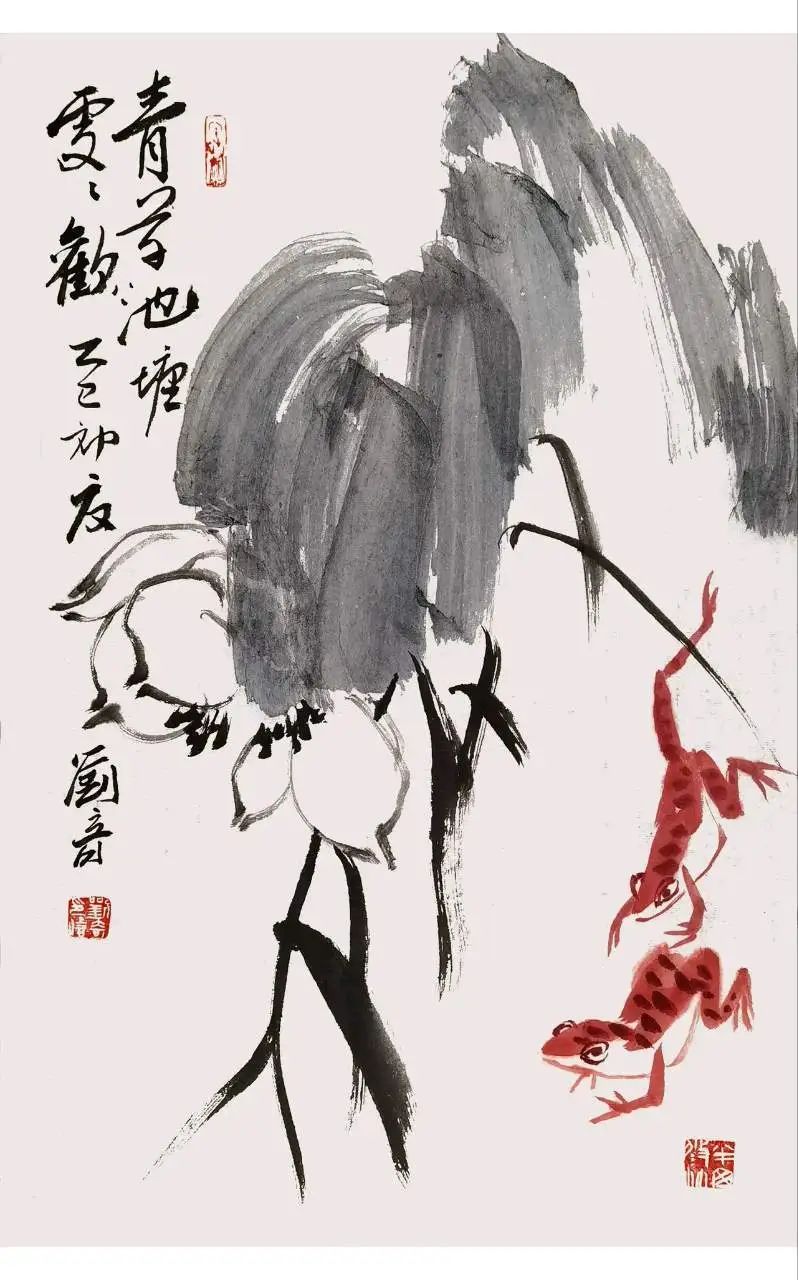 青草池塘
處〻歡 乙巳初夏
劉音